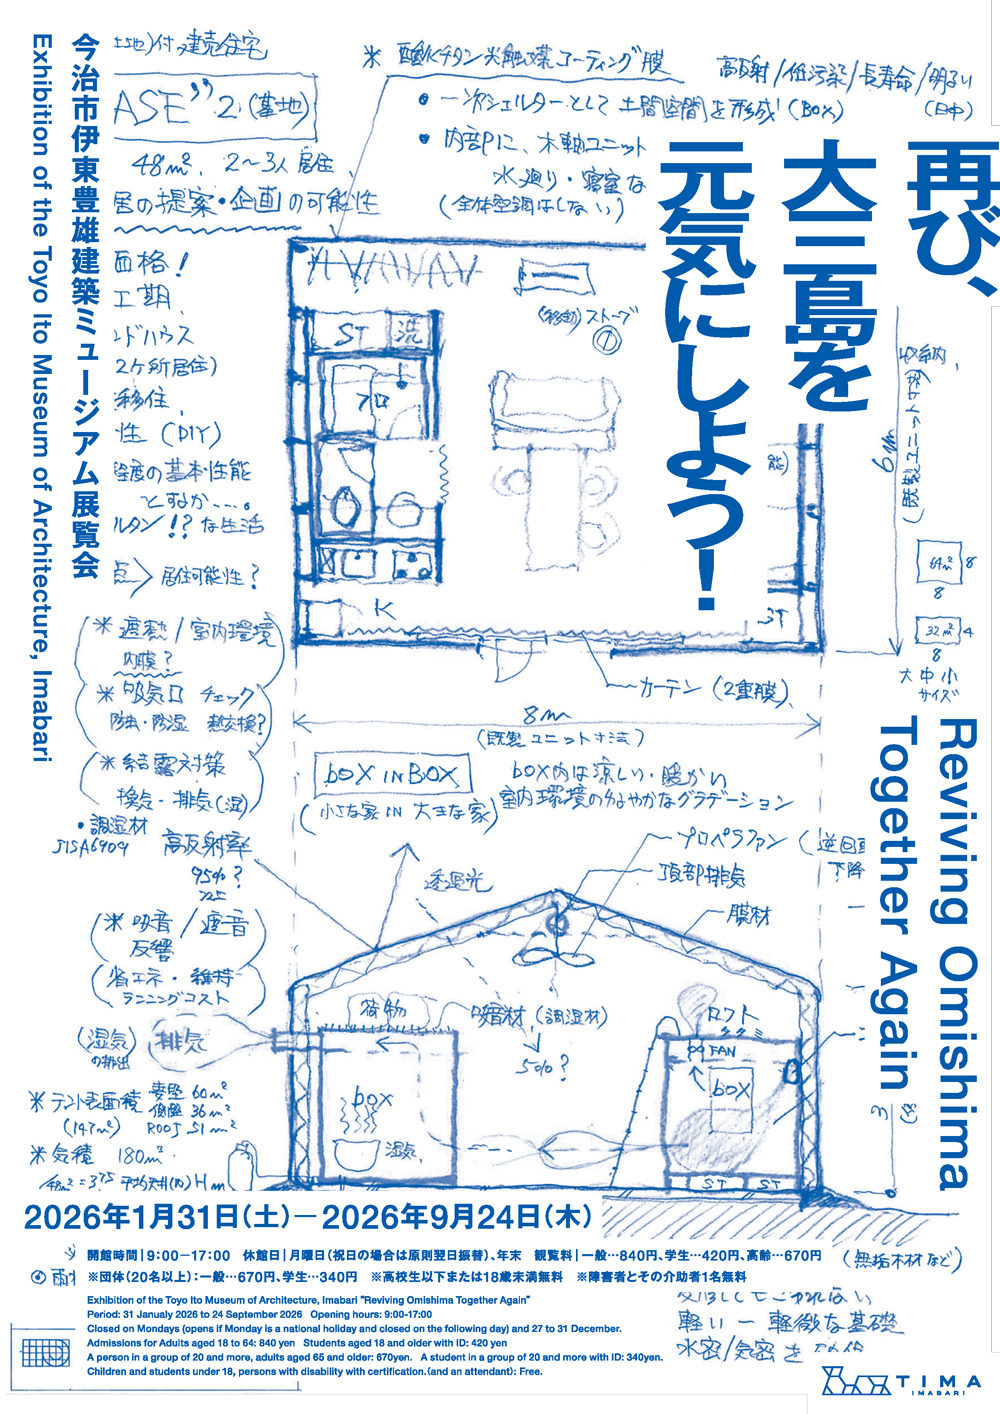 再び、
大三島を
元気にしよう!
Reviving Omishima
Together Again
今治市伊東豊雄建築ミュージアム展覧会
Exhibition of the Toyo Ito Museum of Architecture, Imabari
付 建売住宅
ASE" 2 (基地)
48m², 2〜3人居住
居の提案・企画の可能性
価格!
工期
ンドハウス
2ヶ所居住)
移住
性 (DIY)
の基本性能
とすなか....。
ルタン!?な生活
点 > 居住可能性?
※ 酸化チタン光触媒コーティング膜
高反射/低汚染/長寿命/明るい
(日中)
● 一次シェルターとして 土間空間を形成! (BOX)
● 内部に、木軸ユニット
水廻り・寝室な
(全体空調はしない)
(移動) ストーブ
ST
洗
フロ
K
ST
収納
6m
(既製ユニット寸法)
64m²
8
8
32m²
4
8
大中小
サイズ
カーテン (2重膜)
8m
(既製ユニット寸法)
※ 遮熱/室内環境
内膜?
※ 吸気口 チェック
防虫・防湿 熱交換?
※ 結露対策
換気・排気(湿)
・調湿材
JISA6909
高反射率
95%?
※ 吸音/遮音
反響
省エネ・維持
ランニングコスト
(湿気)
の排出
排気
BOX IN BOX
(小さな家 IN 大きな家)
box内は涼しい・暖かい
室内環境のゆるやかなグラデーション
プロペラファン
下降
頂部排気
膜材
透過光
荷物
吸湿材 (調湿材)
50%?
ロフト
タタミ
FAN
box
box
湿気
ST
ST
※ テント表面積
(147m²)
妻壁 60m²
側壁 36m²
ROOF 51m²
※ 気積 180m³
3
2026年1月31日(土)—2026年9月24日(木)
開館時間|9:00−17:00 休館日|月曜日(祝日の場合は原則翌日振替)、年末 観覧料|一般…840円、学生…420円、高齢…670円
※団体(20名以上):一般…670円、学生…340円 ※高校生以下または18歳未満無料 ※障害者とその介助者1名無料
(無垢木材など)
Exhibition of the Toyo Ito Museum of Architecture, Imabari "Reviving Omishima Together Again"
Period: 31 Janualy 2026 to 24 September 2026 Opening hours: 9:00-17:00
Closed on Mondays (opens if Monday is a national holiday and closed on the following day) and 27 to 31 December.
Admissions for Adults aged 18 to 64: 840 yen Students aged 18 and older with ID: 420 yen
A person in a group of 20 and more, adults aged 65 and older: 670yen. A student in a group of 20 and more with ID: 340yen.
Children and students under 18, persons with disability with certification.(and an attendant): Free.
軽い ー 軽微な基礎
水密/気密を
TIMA
IMABARI